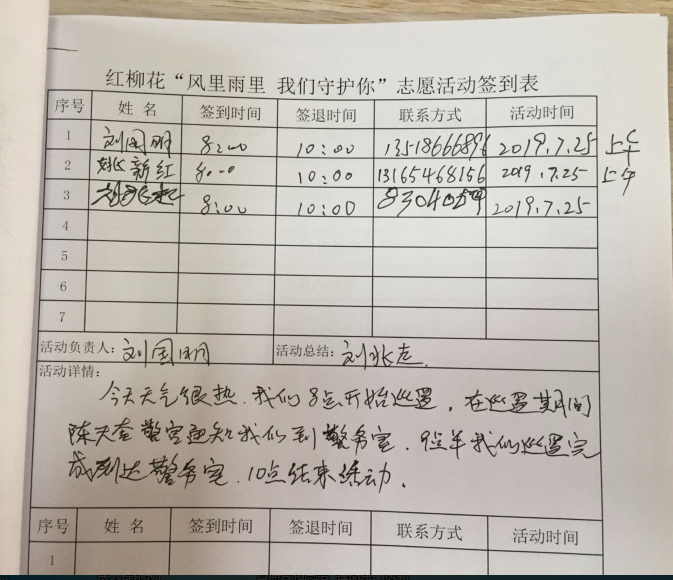 红柳花“风里雨里 我们守护你”志愿活动签到表
序号 姓名 签到时间 签退时间 联系方式 活动时间
1 刘国明 8:00 10:00 1351866689 2019.7.25 上午
2 姚新红 8:00 10:00 13165468156 2019.7.25 上午
3 8:00 10:00 2019.7.25
4
5
6
7
活动负责人：刘国明 活动总结：刘兆志
活动详情：
今天天气很热.我们8点开始巡逻，在巡逻期间
陈天奎警官通知我们到警务室.9点半我们巡逻完
成到达警务室.10点结束活动.
序号 姓名 签到时间 签退时间 联系方式 活动时间
1